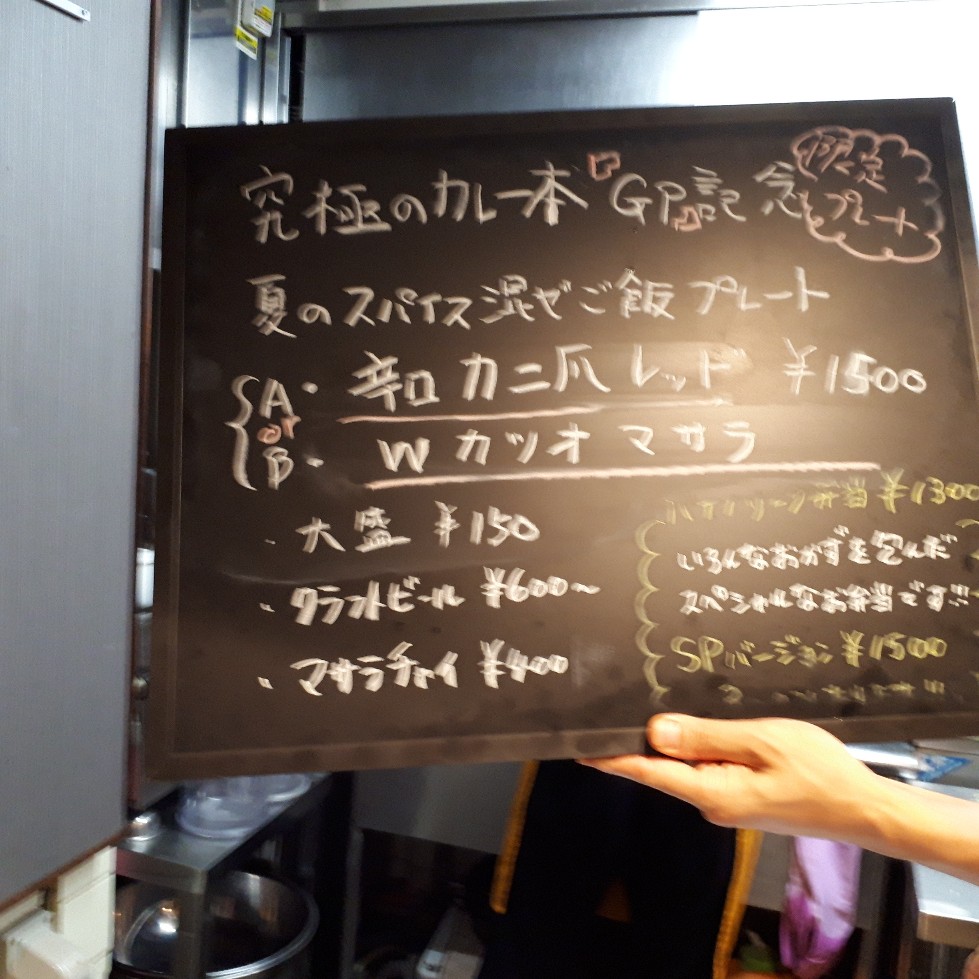 究極のカレー本「GP」記念
限定
プレート
夏のスパイス混ぜご飯プレート
A. 辛口カニ爪レッド ¥1500
or
B. Wカツオマサラ
・大盛 ¥150
・クラフトビール ¥600〜
・マサラチャイ ¥400
弁当 ¥1300
いろんなおかずを包んだ
スペシャルなお弁当です!!
SPバージョン ¥1500